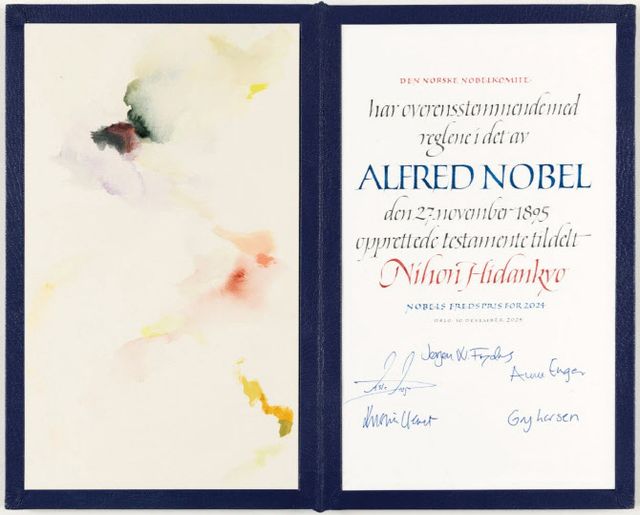 DEN NORSKE NOBELKOMITE
har overensstemmende med
reglene i det av
ALFRED NOBEL
den 27. november 1895
opprettede testamente tildelt
Nihon Hidankyo
NOBELS FREDSPRIS FOR 2024
OSLO, 10 DESEMBER 2024
Jørgen W. Frydnes
Anne Enger
Gry Larsen